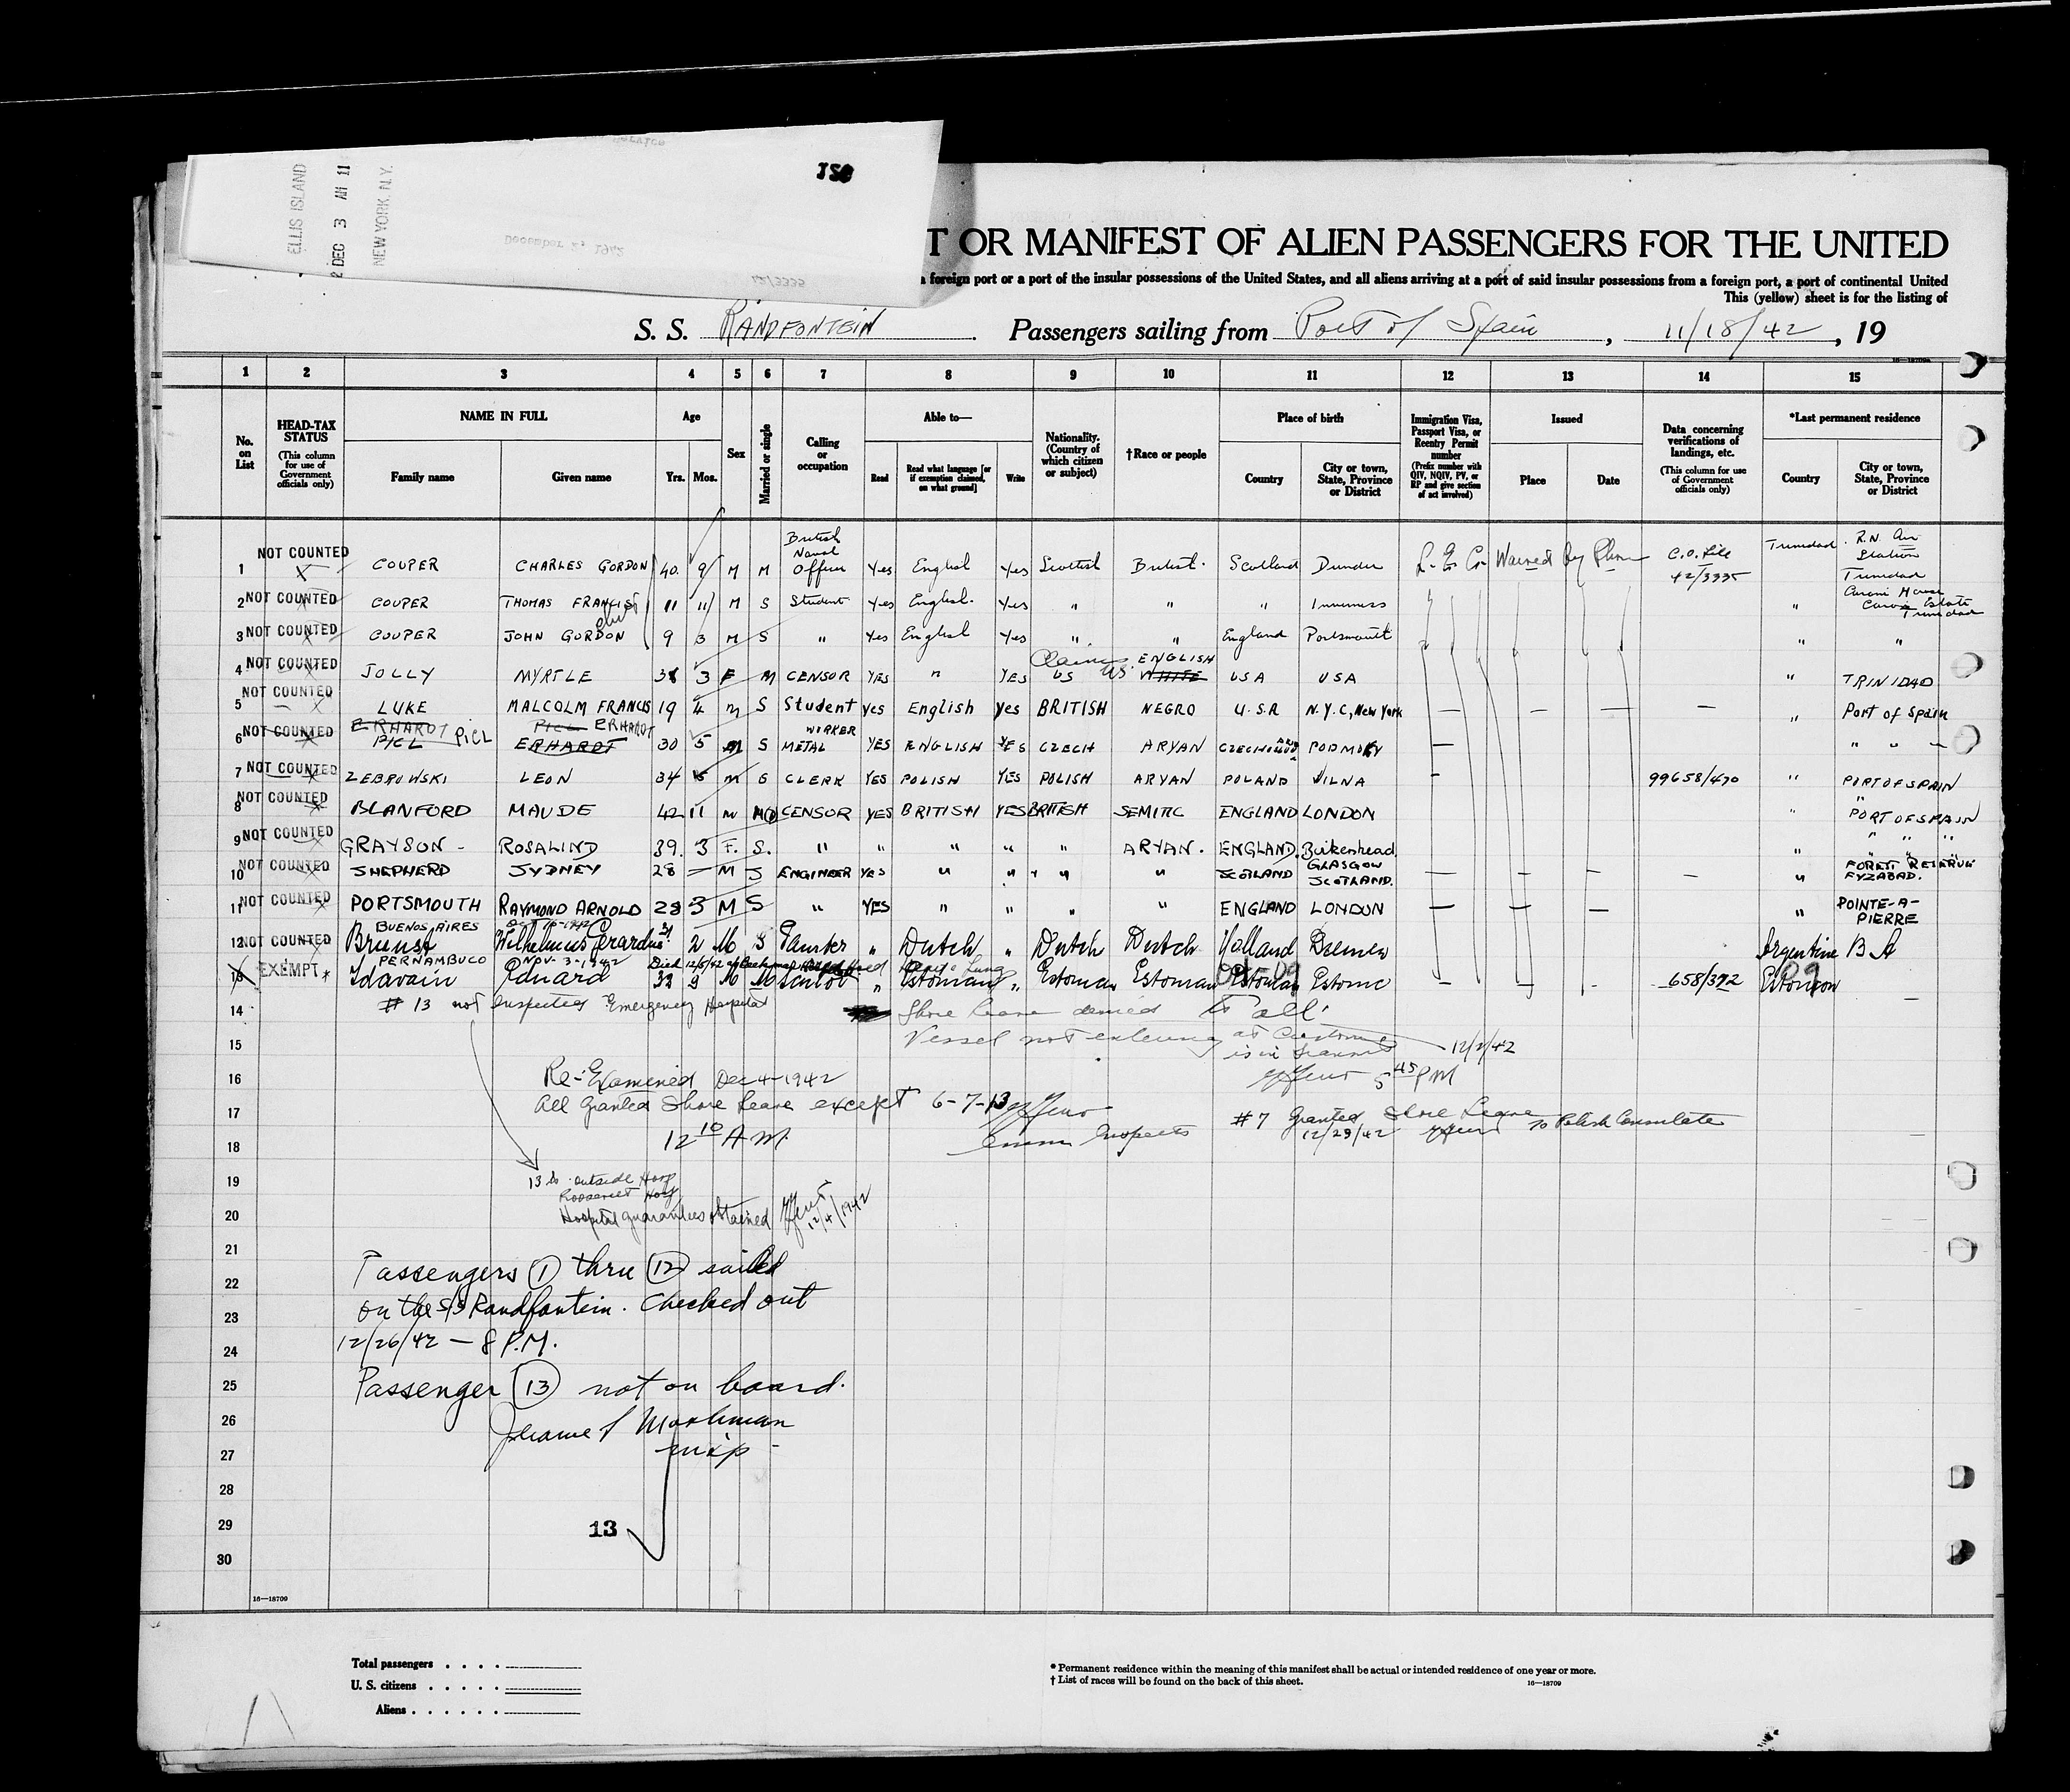 ELLIS ISLAND
2 DEC 3 AM 11
NEW YORK, N.Y.
December 2, 1942
42/3335
T OR MANIFEST OF ALIEN PASSENGERS FOR THE UNITED
a foreign port or a port of the insular possessions of the United States, and all aliens arriving at a port of said insular possessions from a foreign port, a port of continental United
This (yellow) sheet is for the listing of
S. S. RANDFONTEIN Passengers sailing from Port of Spain , 11/18/42 , 19
16—18709a
1 2 3 4 5 6 7 8 9 10 11 12 13 14 15
No. on List
HEAD-TAX STATUS (This column for use of Government officials only)
NAME IN FULL
Family name Given name
Age
Yrs. Mos.
Sex
Married or single
Calling or occupation
Able to—
Read Read what language [or if exemption claimed, on what ground] Write
Nationality. (Country of which citizen or subject)
†Race or people
Place of birth
Country City or town, State, Province or District
Immigration Visa, Passport Visa, or Reentry Permit number (Prefix number with QIV, NQIV, PV, or RP and give section of act involved)
Issued
Place Date
Data concerning verifications of landings, etc. (This column for use of Government officials only)
*Last permanent residence
Country City or town, State, Province or District
1 NOT COUNTED COUPER CHARLES GORDON 40 9 M M British Naval Officer Yes English Yes Scottish British Scotland Dundee Waived By C.O. File 42/3335 Trinidad R.N. Air Station Trinidad
2 NOT COUNTED COUPER THOMAS FRANCIS 11 11 M S Student Yes English Yes " " " Inverness " Caroni House Caroni Estate Trinidad
3 NOT COUNTED COUPER JOHN GORDON 9 3 M S " Yes English Yes " " England Portsmouth " "
4 NOT COUNTED JOLLY MYRTLE 38 3 F M CENSOR YES " YES Claims US US ENGLISH WHITE USA USA " TRINIDAD
5 NOT COUNTED LUKE MALCOLM FRANCIS 19 4 m S Student yes English yes BRITISH NEGRO U.S.A N.Y.C, New York — — — — " Port of Spain
6 NOT COUNTED ERHARDT PICL PICL PICL ERHARDT ERHARDT 30 5 m S METAL WORKER YES ENGLISH YES CZECH ARYAN PODMOKY — " " "
7 NOT COUNTED ZEBROWSKI LEON 34 5 m S CLERK YES POLISH YES POLISH ARYAN POLAND VILNA - 99658/470 " PORT OF SPAIN
8 NOT COUNTED BLANFORD MAUDE 42 11 CENSOR YES BRITISH YES BRITISH SEMITIC ENGLAND LONDON " PORT OF SPAIN
9 NOT COUNTED GRAYSON - ROSALIND 39. 3 F. S. " " " " " ARYAN. ENGLAND. Birkenhead. " " " "
10 NOT COUNTED SHEPHERD SYDNEY 28 — M S ENGINEER YES " " " " SCOTLAND GLASGOW SCOTLAND. — — — — " FOREST RESERVE FYZABAD.
11 NOT COUNTED PORTSMOUTH RAYMOND ARNOLD 28 3 M S " YES " " " " ENGLAND LONDON — — — " POINTE-A-PIERRE
BUENOS AIRES
12 NOT COUNTED Wilhelmus Gerardus 2 M S " Dutch " Dutch Dutch Holland Argentine B A
PERNAMBUCO NOV- 3-1942 Died 12/5/42
13 EXEMPT Idavain Eduard 39 9 M M Sailor " Estonian " Estonian Estonian Estonian 658/372 Estonian
14 # 13 not inspected Emergency Hospital Shore leave denied to all.
15 Vessel not entering at Customs is in transit 12/2/42
16 Re-Examined Dec 4-1942 5 45 PM
17 All Granted Shore leave except 6-7-13 #7 Granted Shore Leave To Polish Consulate 12/29/42
18 12 10 A M. Inspector
19 13 to outside Hosp Roosevelt Hosp
20 Hospital guarantees obtained 12/4/1942
21
22 Passengers 1 thru 12 sailed
23 on the S/S Randfontein. Checked out
24 12/26/42 — 8 P.M.
25 Passenger 13 not on board.
26
27 insp -
28
29 13
30
16—18709
Total passengers . . . .
U. S. citizens . . . . .
Aliens . . . . . .
* Permanent residence within the meaning of this manifest shall be actual or intended residence of one year or more.
† List of races will be found on the back of this sheet.
16—18709